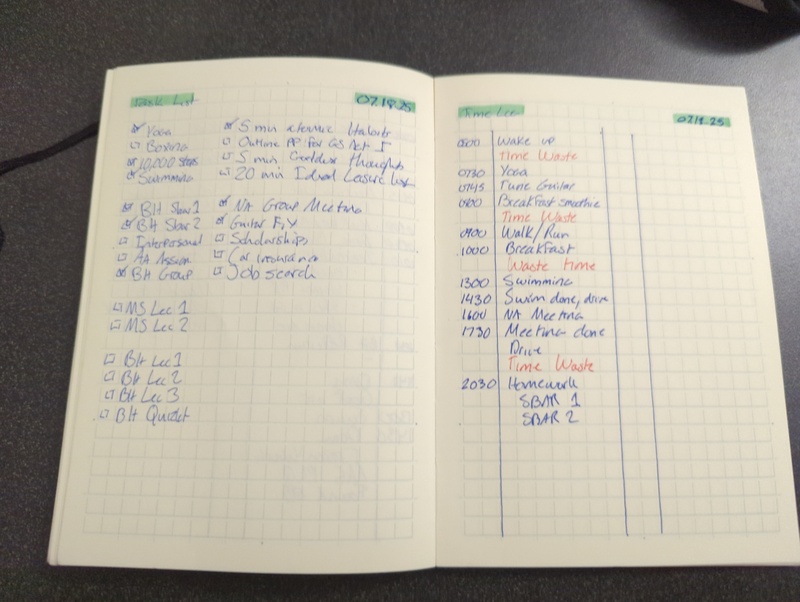 Task List
07.18.25
Yoga
Boxing
10,000 steps
Swimming
5 min alternic Habits
Outline PP For GS Act I
5 min thoughts
20 min Ideal Leisure List
BH Sbar 1
BH Sbar 2
Interpersonal
AA Assign
BH Group
NA Group Meeting
Guitar F, Y
Scholarships
Car Insurance
Job search
MS Lec 1
MS Lec 2
BH Lec 1
BH Lec 2
BH Lec 3
BH
Time Log
07.18.25
0500 Wake up
Time Waste
0730 Yoga
0745 Tune Guitar
0800 Breakfast smoothie
Time Waste
0900 Walk/Run
1000 Breakfast
Waste time
1300 Swimming
1430 Swim done, drive
1600 NA Meeting
1730 Meeting done
Drive
Time Waste
2030 Homework
SBAR 1
SBAR 2